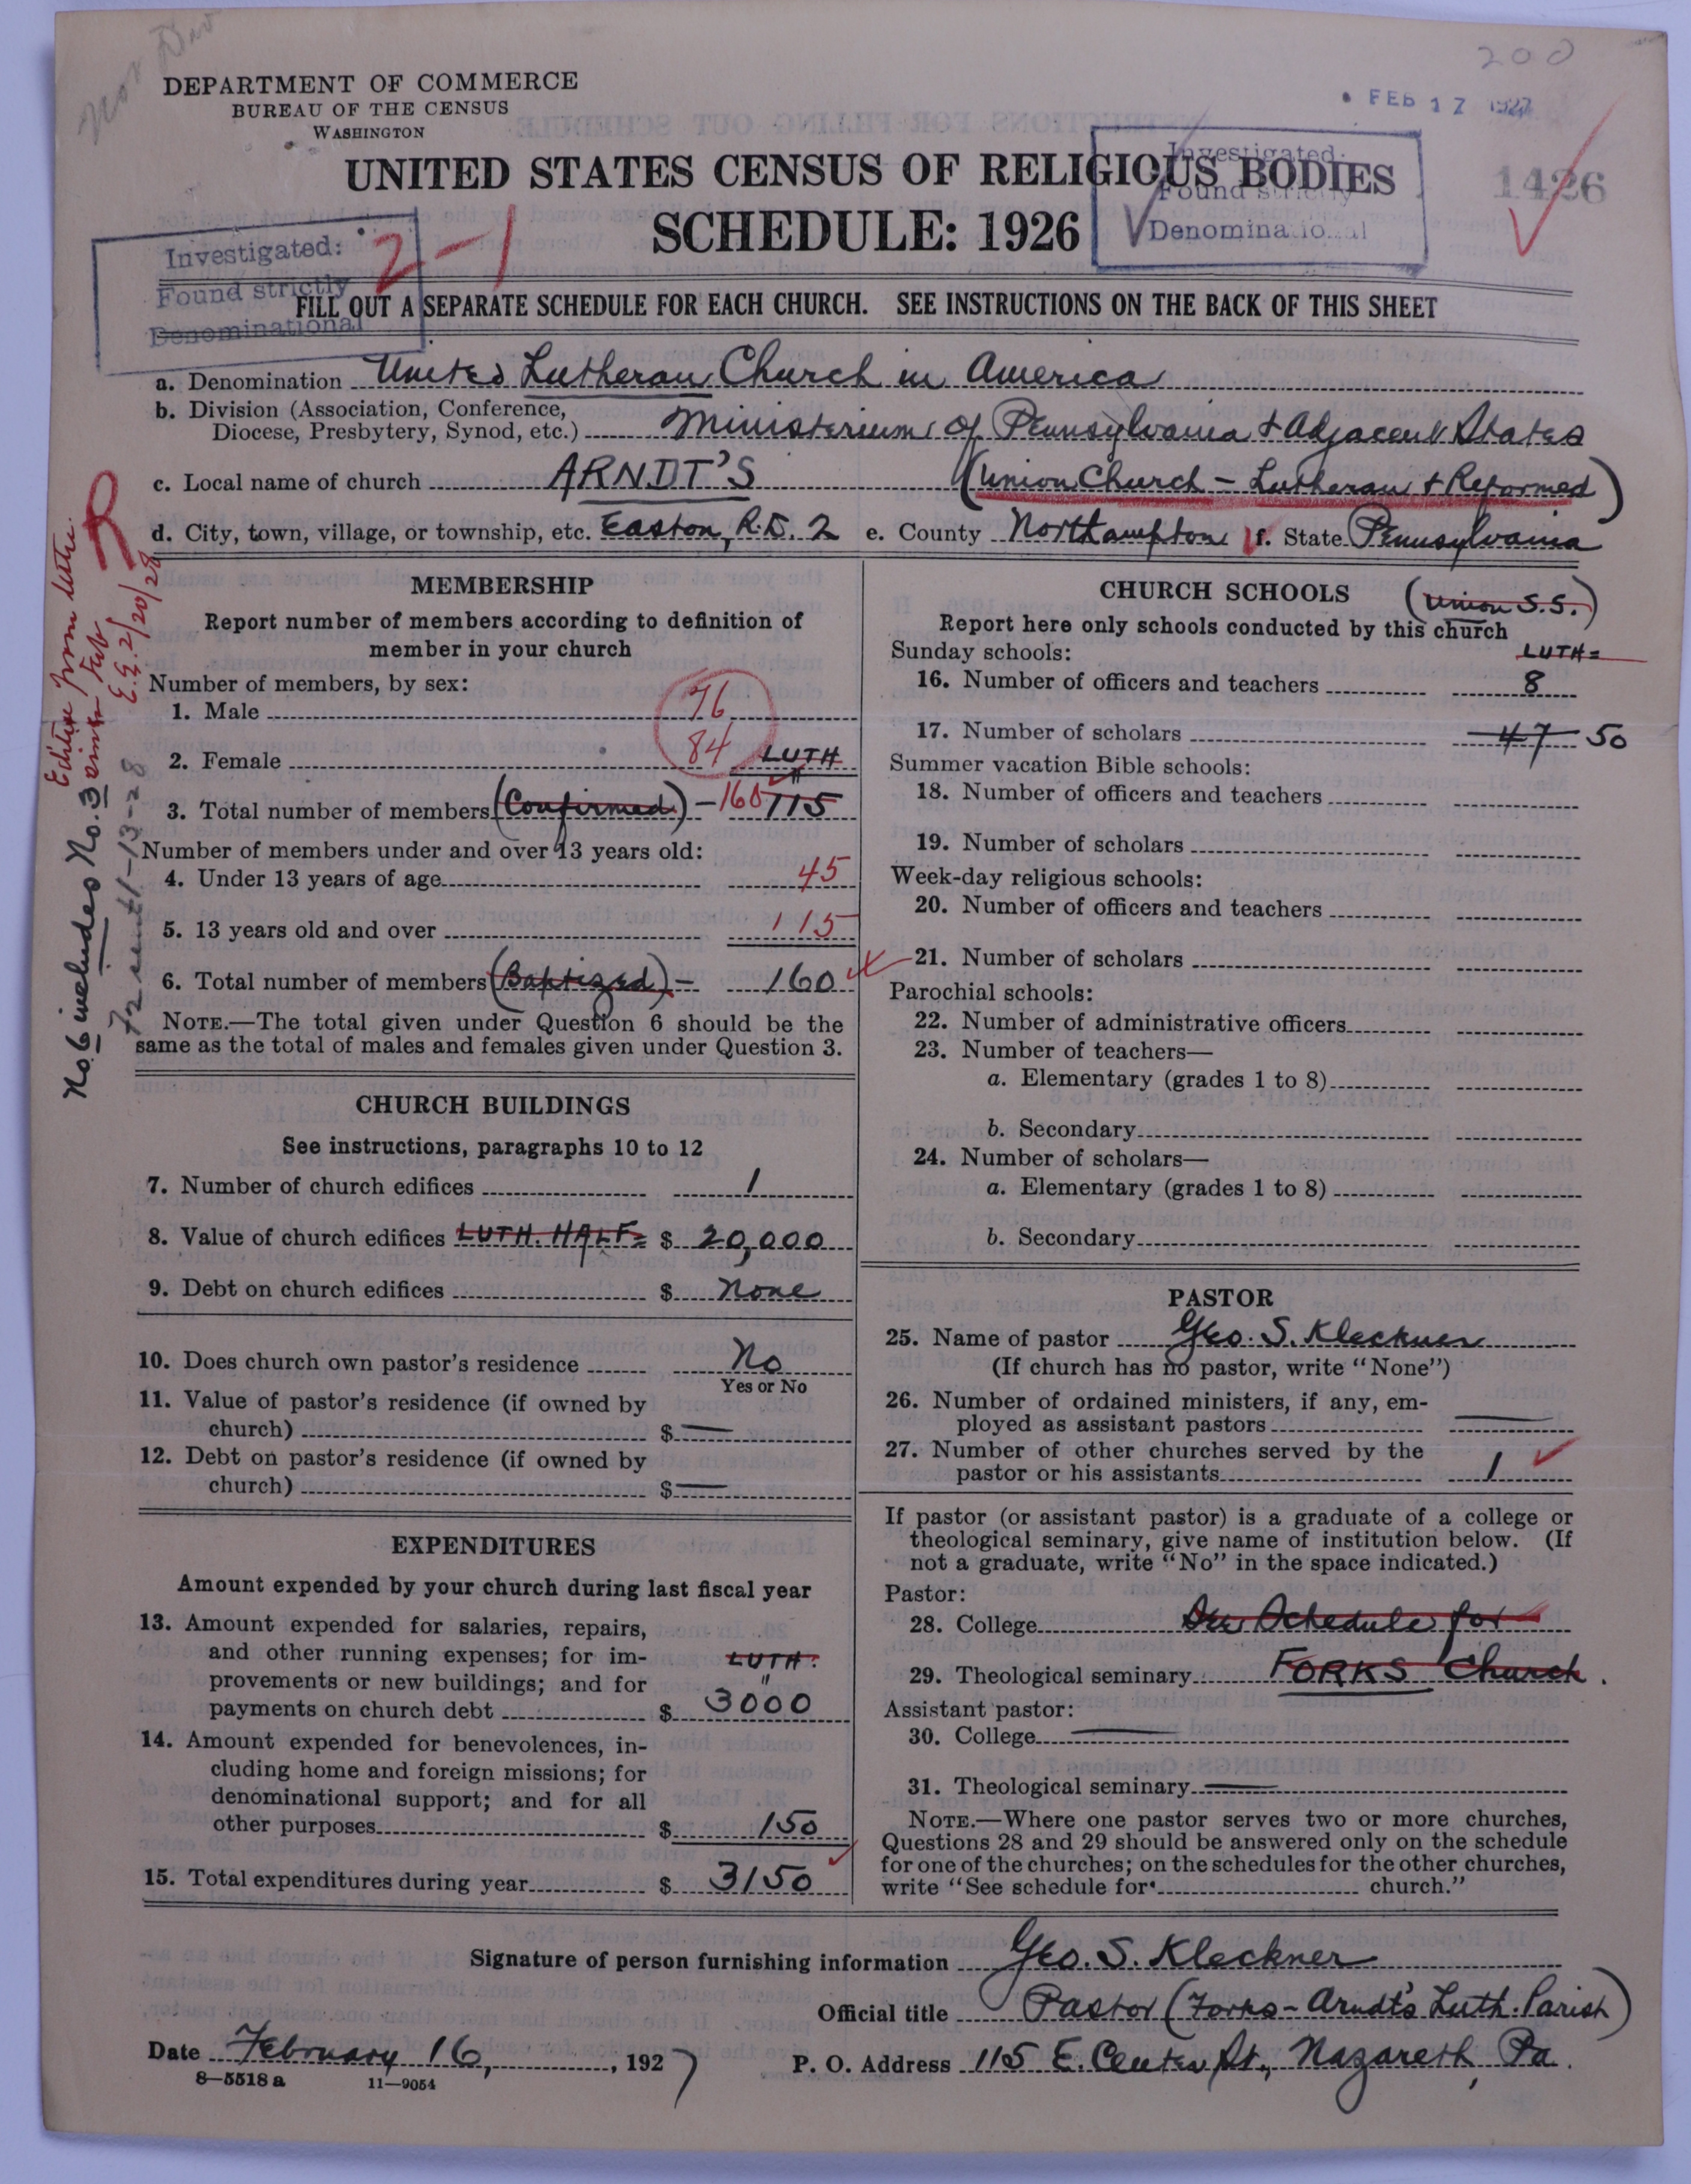 200
DEPARTMENT OF COMMERCE
BUREAU OF THE CENSUS
WASHINGTON
FEB 17 1927
UNITED STATES CENSUS OF RELIGIOUS BODIES
SCHEDULE: 1926
1426
Investigated:
Found strictly
Denominational
Investigated:
Found strictly
Denominational
2-1
FILL OUT A SEPARATE SCHEDULE FOR EACH CHURCH. SEE INSTRUCTIONS ON THE BACK OF THIS SHEET
a. Denomination United Lutheran Church in America
b. Division (Association, Conference, Diocese, Presbytery, Synod, etc.) Ministerium of Pennsylvania & Adjacent States
c. Local name of church ARNDT'S (Union Church - Lutheran & Reformed)
d. City, town, village, or township, etc. Easton, R.D. 2 e. County Northampton f. State Pennsylvania
R
E.G. 2/20/28
No. 6 includes No. 3
MEMBERSHIP
Report number of members according to definition of
member in your church
Number of members, by sex:
1. Male 76
2. Female 84 LUTH
3. Total number of members (Confirmed) - 160 115
Number of members under and over 13 years old:
4. Under 13 years of age 45
5. 13 years old and over 115
6. Total number of members (Baptized) - 160
NOTE.—The total given under Question 6 should be the
same as the total of males and females given under Question 3.
CHURCH BUILDINGS
See instructions, paragraphs 10 to 12
7. Number of church edifices 1
8. Value of church edifices LUTH. HALF = $ 20,000
9. Debt on church edifices $ None
10. Does church own pastor's residence No
Yes or No
11. Value of pastor's residence (if owned by
church) $ —
12. Debt on pastor's residence (if owned by
church) $ —
EXPENDITURES
Amount expended by your church during last fiscal year
13. Amount expended for salaries, repairs,
and other running expenses; for im-
LUTH.
provements or new buildings; and for
payments on church debt $ 3000
14. Amount expended for benevolences, in-
cluding home and foreign missions; for
denominational support; and for all
other purposes $ 150
15. Total expenditures during year $ 3150
CHURCH SCHOOLS (Union S.S.)
Report here only schools conducted by this church
Sunday schools: LUTH=
16. Number of officers and teachers 8
17. Number of scholars 47 50
Summer vacation Bible schools:
18. Number of officers and teachers
19. Number of scholars
Week-day religious schools:
20. Number of officers and teachers
21. Number of scholars
Parochial schools:
22. Number of administrative officers
23. Number of teachers—
a. Elementary (grades 1 to 8)
b. Secondary
24. Number of scholars—
a. Elementary (grades 1 to 8)
b. Secondary
PASTOR
25. Name of pastor Geo. S. Kleckner
(If church has no pastor, write "None")
26. Number of ordained ministers, if any, em-
ployed as assistant pastors —
27. Number of other churches served by the
pastor or his assistants 1
If pastor (or assistant pastor) is a graduate of a college or
theological seminary, give name of institution below. (If
not a graduate, write "No" in the space indicated.)
Pastor:
28. College See Schedule for
29. Theological seminary FORKS Church.
Assistant pastor:
30. College —
31. Theological seminary —
NOTE.—Where one pastor serves two or more churches,
Questions 28 and 29 should be answered only on the schedule
for one of the churches; on the schedules for the other churches,
write "See schedule for church."
Signature of person furnishing information Geo. S. Kleckner
Official title Pastor (Forks - Arndt's Luth. Parish)
Date February 16, 1927 P. O. Address 115 E. Center St., Nazareth, Pa.
8—5518 a 11—9054